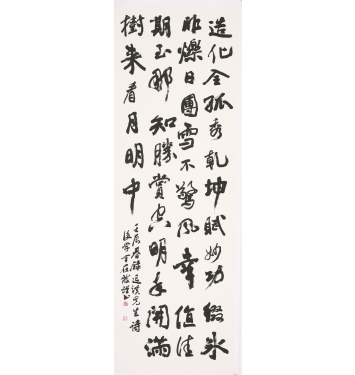 造化全孤秀乾坤賦妙功綴氷
非爍日團雪不驚風幸值佳
期玉那知勝賞空明年開滿
樹来看月明中
壬辰春錄退溪先生詩